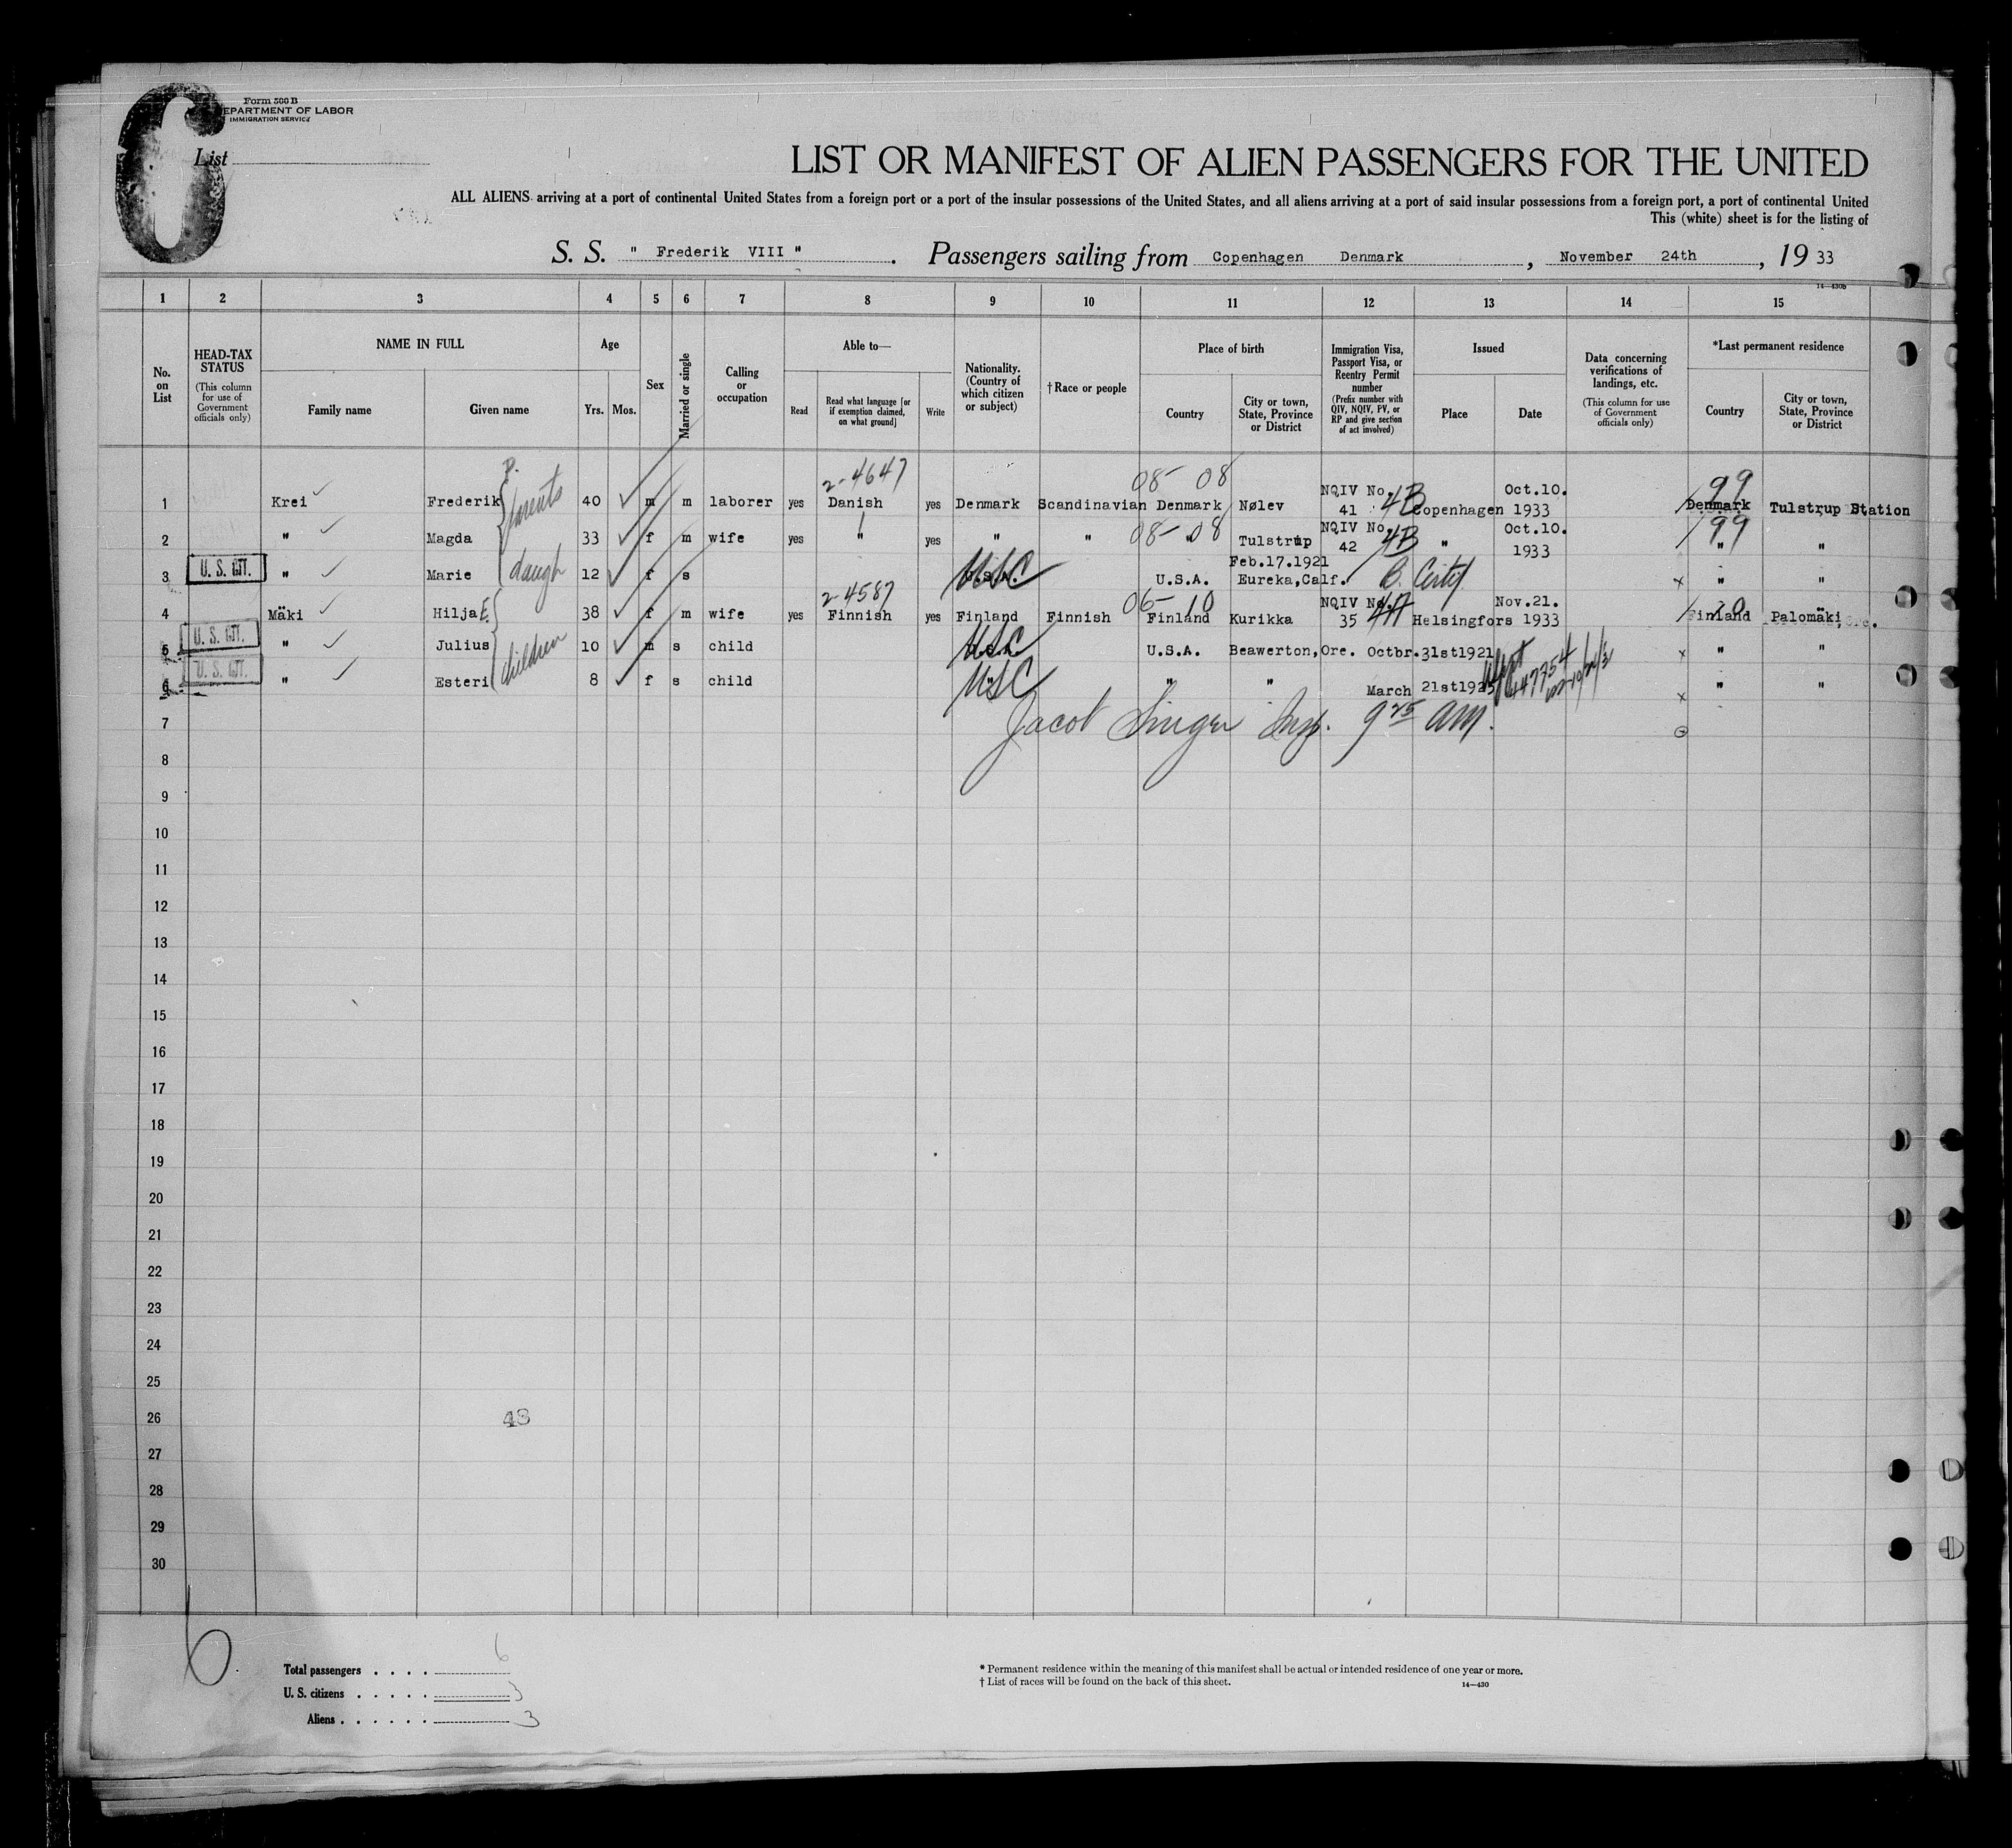 Form 500 B
DEPARTMENT OF LABOR
IMMIGRATION SERVICE
List
LIST OR MANIFEST OF ALIEN PASSENGERS FOR THE UNITED
ALL ALIENS arriving at a port of continental United States from a foreign port or a port of the insular possessions of the United States, and all aliens arriving at a port of said insular possessions from a foreign port, a port of continental United
This (white) sheet is for the listing of
S. S. " Frederik VIII ". Passengers sailing from Copenhagen Denmark, November 24th, 19 33
14—430B
1 2 3 4 5 6 7 8 9 10 11 12 13 14 15
No. on List
HEAD-TAX STATUS
(This column for use of Government officials only)
NAME IN FULL
Family name Given name
Age
Yrs. Mos.
Sex
Married or single
Calling or occupation
Able to—
Read
Read what language [or if exemption claimed, on what ground]
Write
Nationality. (Country of which citizen or subject)
†Race or people
Place of birth
Country
City or town, State, Province or District
Immigration Visa, Passport Visa, or Reentry Permit number
(Prefix number with QIV, NQIV, PV, or RP and give section of act involved)
Issued
Place Date
Data concerning verifications of landings, etc.
(This column for use of Government officials only)
*Last permanent residence
Country
City or town, State, Province or District
P.
parents
2-4647
08- 08
99
1 Krei Frederik 40 m m laborer yes Danish yes Denmark Scandinavian Denmark Nølev NQIV No. 41 4B Copenhagen Oct.10. 1933 Denmark Tulstrup Station
08- 08
99
2 " Magda 33 f m wife yes " yes " " Tulstrup NQIV No. 42 4B " Oct.10. 1933 " "
3 U. S. CIT. " Marie daugh 12 f s U.S.A. USC U.S.A. Feb.17.1921 Eureka,Calf. B. Certif " "
2-4587
06- 10
4 Mäki Hilja E. 38 f m wife yes Finnish yes Finland Finnish Finland Kurikka NQIV No. 35 4A Helsingfors Nov.21. 1933 Finland Palomäki
5 U. S. CIT. " Julius children 10 m s child USC U.S.A. Beawerton,Ore. Octbr.31st1921 " "
6 U. S. CIT. " Esteri 8 f s child USC " " March 21st1925 447754 " "
Jacob Singer Insp. 9 25 AM.
7
8
9
10
11
12
13
14
15
16
17
18
19
20
21
22
23
24
25
26
43
27
28
29
30
Total passengers . . . . 6
U. S. citizens . . . . . 3
Aliens . . . . . . 3
* Permanent residence within the meaning of this manifest shall be actual or intended residence of one year or more.
† List of races will be found on the back of this sheet.
14—430